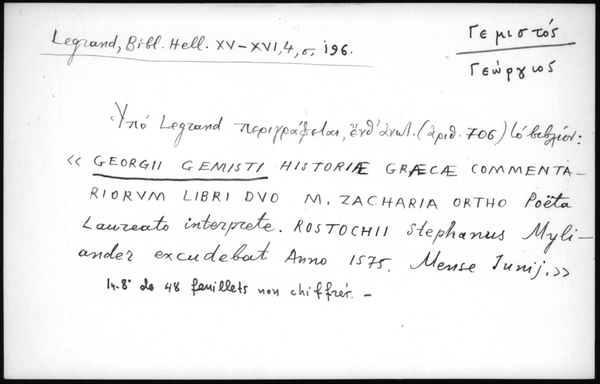 Legrand, Bibl. Hell. XV-XVI, 4, σ. 196.
Γεμιστός
Γεώργιος
Ὑπό Legrand περιγράφεται, ἐνθ' ἀνωτ. (ἀριθ. 706) τό βιβλίον:
« GEORGII GEMISTI HISTORIÆ GRÆCÆ COMMENTA-
RIORVM LIBRI DVO M. ZACHARIA ORTHO Poëta
Laureato interprete. ROSTOCHII Stephanus Myli-
ander excudebat Anno 1575. Mense Iunij.»
In-8° de 48 feuillets non chiffrés. -